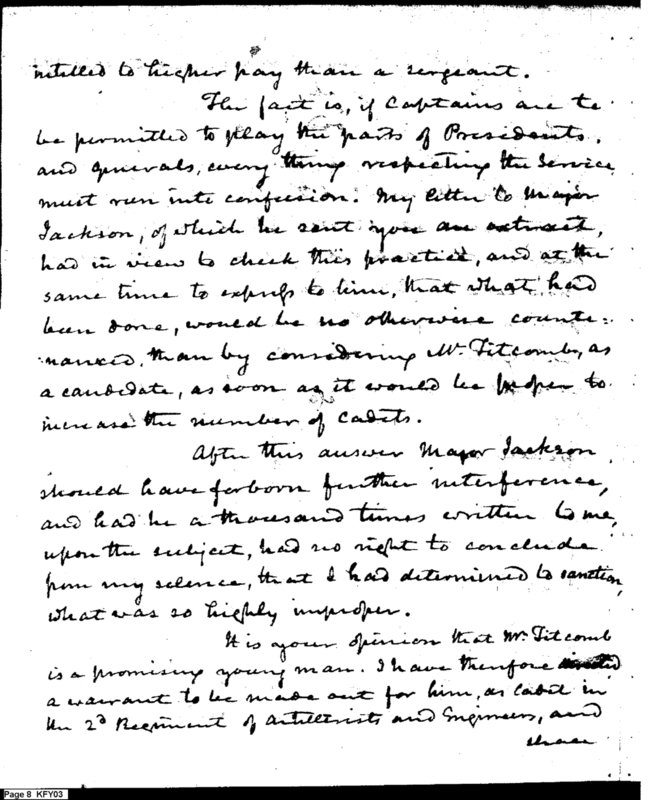 intitled to higher pay than a sergeant.
The fact is, if Captains are to
be permitted to play the parts of Presidents,
and generals, every thing respecting the Service
must run into confusion. My letter to Major
Jackson, of which he sent you an extract,
had in view to check this practice, and at the
same time to express to him, that what had
been done, would be no otherwise counte=
nanced, than by considering Mr. Titcomb, as
a candidate, as soon as it would be proper to
increase the number of Cadets.
After this answer Major Jackson
should have forborn further interference,
and had he a thousand times written to me,
upon the subject, had no right to conclude
from my silence, that I had determined to sanction,
what was so highly improper.
It is your opinion that Mr. Titcomb
is a promising young man. I have therefore directed
a warrant to be made out for him, as Cadet in
the 2d Regiment of Artillerists and Engineers, and
shall
Page 8 KFY03